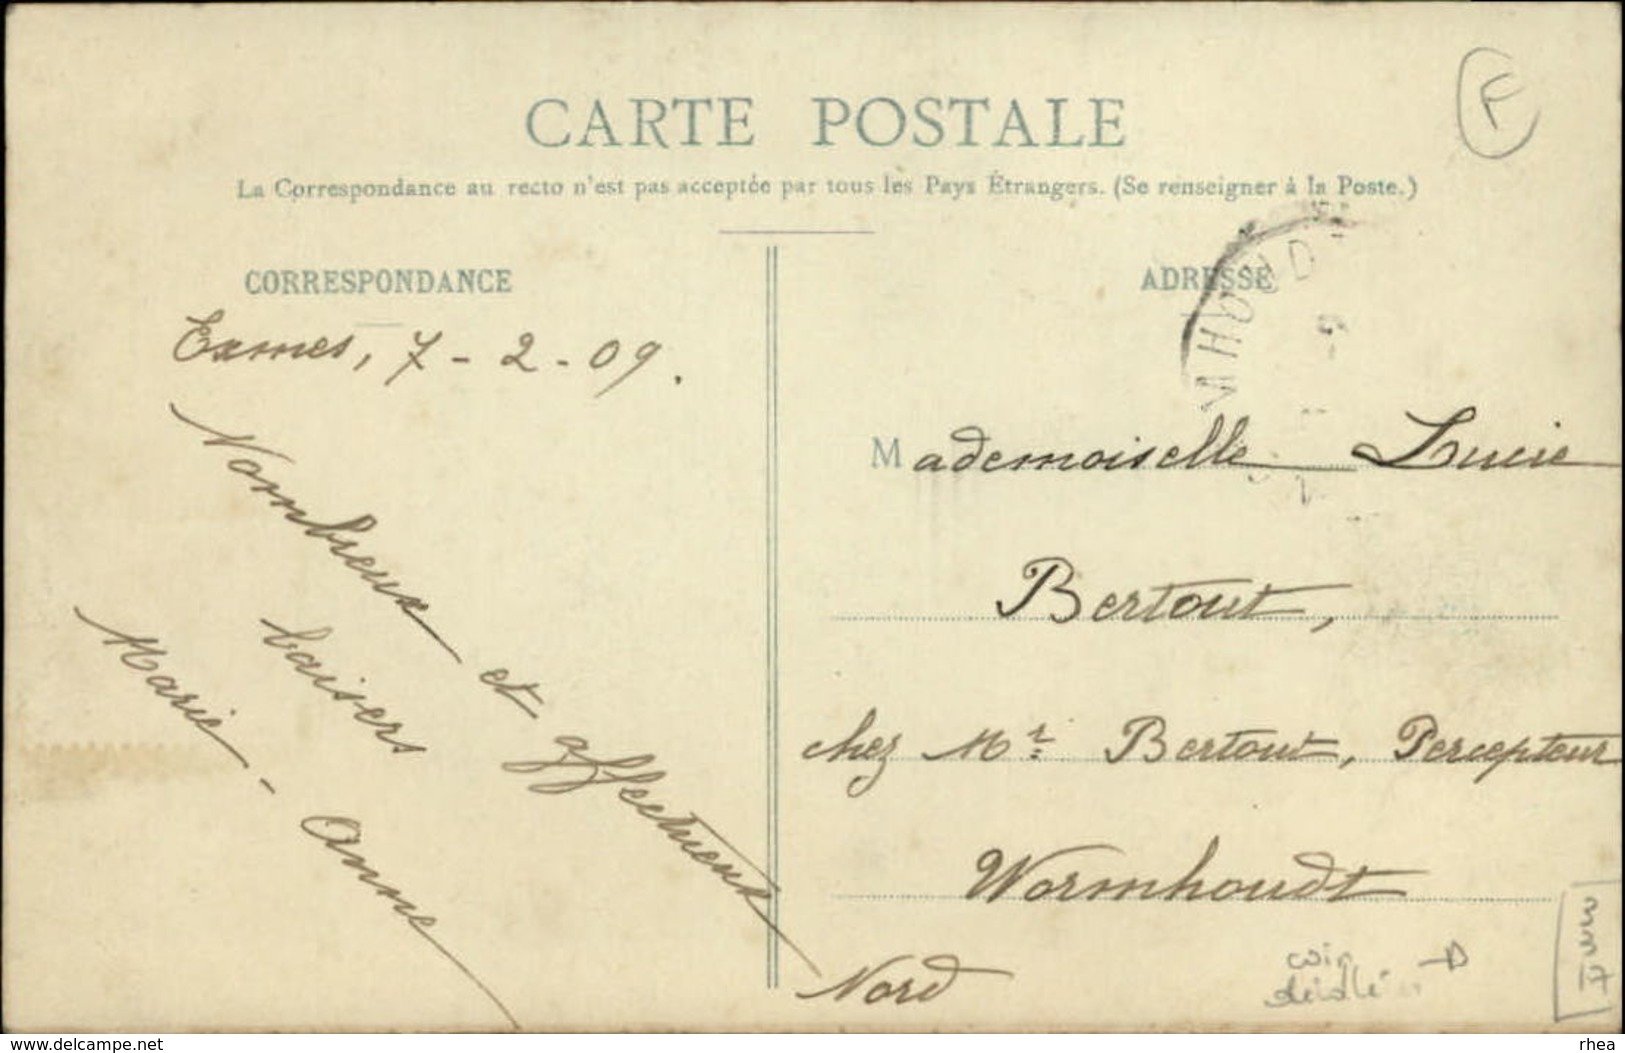 F
CARTE POSTALE
La Correspondance au recto n'est pas acceptée par tous les Pays Étrangers. (Se renseigner à la Poste.)
CORRESPONDANCE
Exmes, 7-2-09.
Nombreux et affectueux
baisers
Marie-Anne
ADRESSE
Mademoiselle Lucie
Bertout,
chez Mr Bertout, Percepteur
Wormhoudt
Nord
coin
www.delcampe.net
rhea